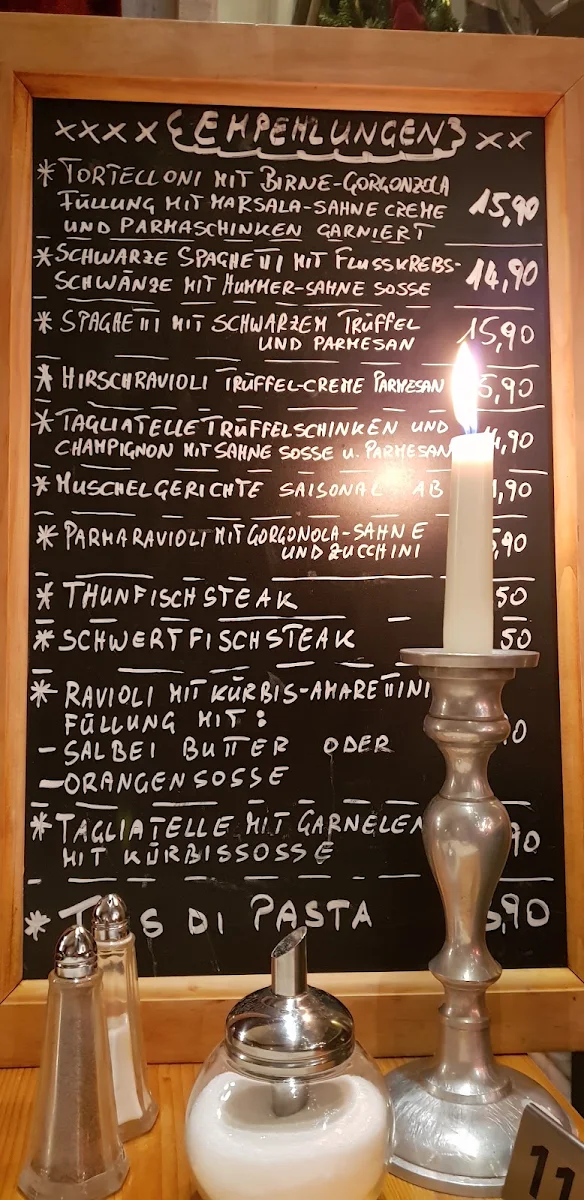 xxxx {EMPEHLUNGEN} xx
* TORTELLONI MIT BIRNE-GORGONZOLA
FÜLLUNG MIT MARSALA-SAHNE CREME 15,90
UND PARMASCHINKEN GARNIERT
* SCHWARZE SPAGHETTI MIT FLUSSKREBS-
SCHWÄNZE MIT HUMMER-SAHNE SOSSE 14,90
* SPAGHETTI MIT SCHWARZEM TRÜFFEL 15,90
UND PARMESAN
* HIRSCHRAVIOLI TRÜFFEL-CREME PARMESAN 5,90
* TAGLIATELLE TRÜFFELSCHINKEN UND
CHAMPIGNON MIT SAHNE SOSSE U. PARMESAN 4,90
* MUSCHELGERICHTE SAISONAL AB 1,90
* PARMARAVIOLI MIT GORGONOLA-SAHNE ,90
UND ZUCCHINI
* THUNFISCHSTEAK 50
* SCHWERTFISCHSTEAK 50
* RAVIOLI MIT KÜRBIS-AMARETTINI
FÜLLUNG MIT: 0
- SALBEI BUTTER ODER
- ORANGENSOSSE
* TAGLIATELLE MIT GARNELEN 90
MIT KÜRBISSOSSE
* DI PASTA 5,90
11